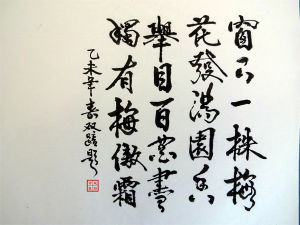 窗下一株梅
花發滿園香
舉目百盡
獨有梅傲霜
乙未年春双題